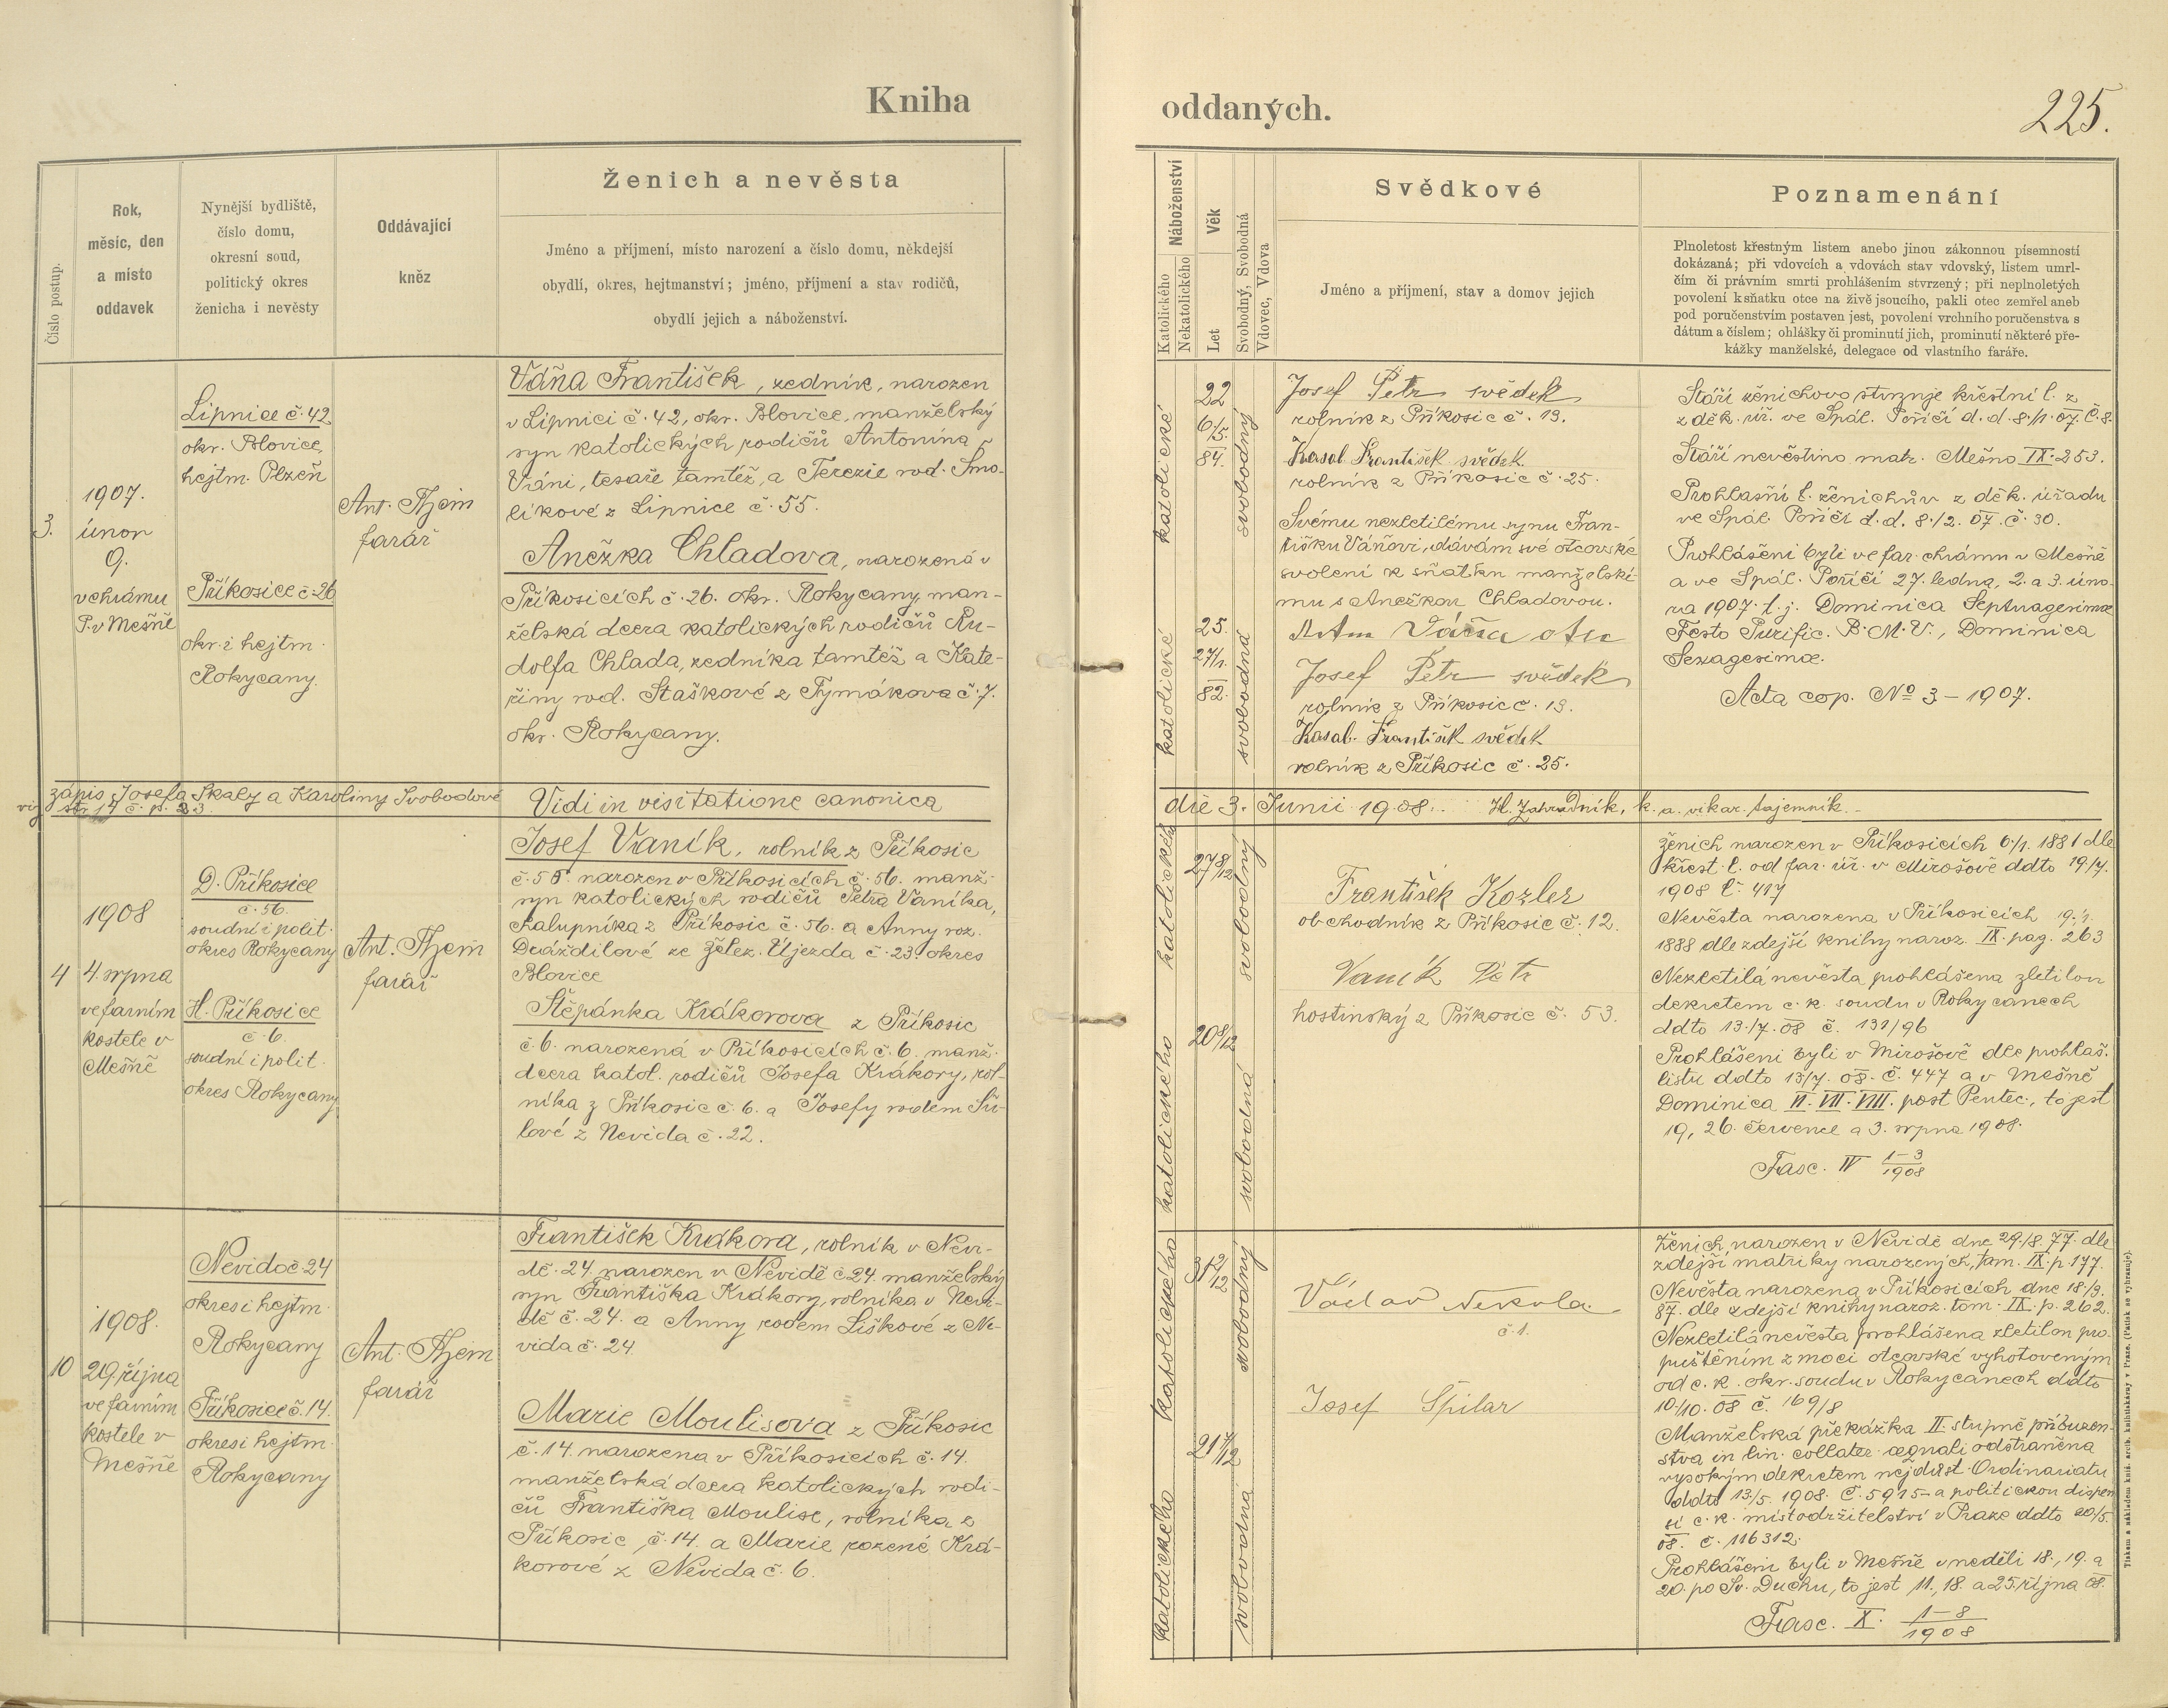 Kniha
oddaných.
225.
Číslo postup.
Rok,
měsíc, den
a místo
oddavek
Nynější bydliště,
číslo domu,
okresní soud,
politický okres
ženicha i nevěsty
Oddávající
kněz
Ženich a nevěsta
Jméno a příjmení, místo narození a číslo domu, někdejší
obydlí, okres, hejtmanství; jméno, příjmení a stav rodičů,
obydlí jejich a náboženství.
Náboženství
Katolického
Nekatolického
Věk
Let
Svobodný, Svobodná
Vdovec, Vdova
Svědkové
Jméno a příjmení, stav a domov jejich
Poznamenání
Plnoletost křestným listem anebo jinou zákonnou písemností
dokázaná; při vdovcích a vdovách stav vdovský, listem umrl-
čím či právním smrti prohlášením stvrzený; při neplnoletých
povolení k sňatku otce na živě jsoucího, pakli otec zemřel aneb
pod poručenstvím postaven jest, povolení vrchního poručenstva s
dátum a číslem; ohlášky či prominutí jich, prominutí některé pře-
kážky manželské, delegace od vlastního faráře.
3.
1907.
únor
9.
v chrámu
P. v Mešně
Lipnice č. 42
okr. Blovice,
hejtm. Plzeň
Příkosice č. 26
okr. i hejtm.
Rokycany.
Ant. Thein
farář
Váňa František, zedník, narozen
v Lipnici č. 42, okr. Blovice, manželský
syn katolických rodičů Antonína
Váni, tesaře tamtéž, a Terezie rod. Smo-
líkové z Lipnice č. 55.
Anežka Chladova, narozená v
Příkosicích č. 26. okr. Rokycany man-
želská dcera katolických rodičů Ru-
dolfa Chlada, zedníka tamtéž a Kate-
řiny rod. Staškové z Tymákova č. 7.
okr. Rokycany.
katolické
22
6/5.
84.
svobodný
katolické
25.
27/1.
82.
svobodná
Josef Petr svědek
rolník z Příkosic č. 19.
Kasal František svědek
rolník z Příkosic č. 25.
Svému nezletilému synu Fran-
tišku Váňovi, dávám své otcovské
svolení k sňatku manželskí-
mu s Anežkou Chladovou.
Antn Váňa otec
Josef Petr svědek
rolník z Příkosic č. 19.
Kasal František svědek
rolník z Příkosic č. 25.
Stáří ženichovo stvrzuje křestní l. z
z děk. úř. ve Spál. Poříčí d. d. 8/1. 07. č. 8.
Stáří nevěstino matr. Mešno IX. 253.
Prohlašní l. ženichův z děk. úřadu
ve Spál. Poříčí d. d. 8./2. 07. č. 30.
Prohlášeni byli ve far. chrámu v Mešně
a ve Spál. Poříčí 27. ledna, 2. a 3. úno-
ra 1907. t. j. Dominica Septuagesimæ
Festo Purific. B. M. V., Dominica
Sexagesimæ.
Acta cop. No 3 – 1907.
zápis Josefa Skaly a Karoliny Svobodové
viz str. 19 č. p. 23.
Vidi in visitatione canonica
die 3. Junii 1908. H. Zahradník, k. a. vikar. tajemník.
4
1908
4. srpna
ve farním
kostele v
Mešně
D. Příkosice
č. 56.
soudní i polit.
okres Rokycany
H. Příkosice
č. 6.
soudní i polit.
okres Rokycany
Ant. Thein
farář
Josef Vaník, rolník z Příkosic
č. 56. narozen v Příkosicích č. 56. manž.
syn katolických rodičů Petra Vaníka,
chalupníka z Příkosic č. 56. a Anny roz.
Drážďilové ze Želez. Újezda č. 23. okres
Blovice
Štěpánka Krákorova z Příkosic
č. 6. narozená v Příkosicích č. 6. manž.
dcera katol. rodičů Josefa Krákory, rol-
níka z Příkosic č. 6. a Josefy rodem Ší-
lové z Nevida č. 22.
katolického
27 8/12
svobodný
katolického
20 8/12
svobodná
František Kozler
obchodník z Příkosic č. 12.
Vaník Petr
hostinský z Příkosic č. 53.
Ženich narozen v Příkosicích 6/1. 1881 dle
křest. l. od far. úř. v Mirošově ddto 19/7.
1908 č. 417
Nevěsta narozena v Příkosicích 19./1.
1888 dle zdejší knihy naroz. IX. pag. 263
Nezletilá nevěsta prohlášena zletilou
dekretem c. k. soudu v Rokycanech
ddto 13./7. 08 č. 131/96
Prohlášeni byli v Mirošově dle prohlaš.
listu ddto 13/7. 08. č. 447 a v Mešně
Dominica VI. VII. VIII. post Pentec., to jest
19, 26. července a 3. srpna 1908.
Fasc. IV 1–3/1908
10
1908.
29 října
ve farním
kostele v
Mešně
Nevido č 24
okres i hejtm.
Rokycany
Příkosice č. 14.
okres i hejtm.
Rokycany
Ant. Thein
farář
František Krákora, rolník v Nevi-
dě. 24. narozen v Nevidě č 24. manželský
syn Františka Krákory, rolníka v Nevi-
dě č. 24. a Anny rodem Liškové z Ne-
vida č. 24.
Marie Moulisova z Příkosic
č. 14. narozena v Příkosicích č. 14.
manželská dcera katolických rodi-
čů Františka Moulise, rolníka z
Příkosic, č. 14. a Marie rozené Krá-
korové z Nevida č. 6.
katolického
31 2/12
svobodný
katolického
21 7/12
svobodná
Václav Nekola.
č. 1.
Josef Špilar
Ženich narozen v Nevidě dne 29./8. 77. dle
zdejší matriky narozených, tom. IX. p. 177.
Nevěsta narozena v Příkosicích dne 18/3.
87. dle zdejší knihy naroz. tom. IX. p. 262.
Nezletilá nevěsta prohlášena zletilou pro-
puštěním z moci otcovské vyhotoveným
od c. k. okr. soudu v Rokycanech ddto
10./10. 08 č. 169/8
Manželská překážka II. stupně příbuzen-
stva in lin. collater. æquali odstraněna
vysokým dekretem nejdůst. Ordinariatu
ddto 13/5. 1908. č. 5915– a politickou dispen-
sí c. k. místodržitelství v Praze ddto 20/5.
08. č. 116312.
Prohlášeni byli v Mešně v neděli 18., 19. a
20. po Sv. Duchu, to jest 11., 18. a 25. října 08.
Fasc. X. 1–8/1908